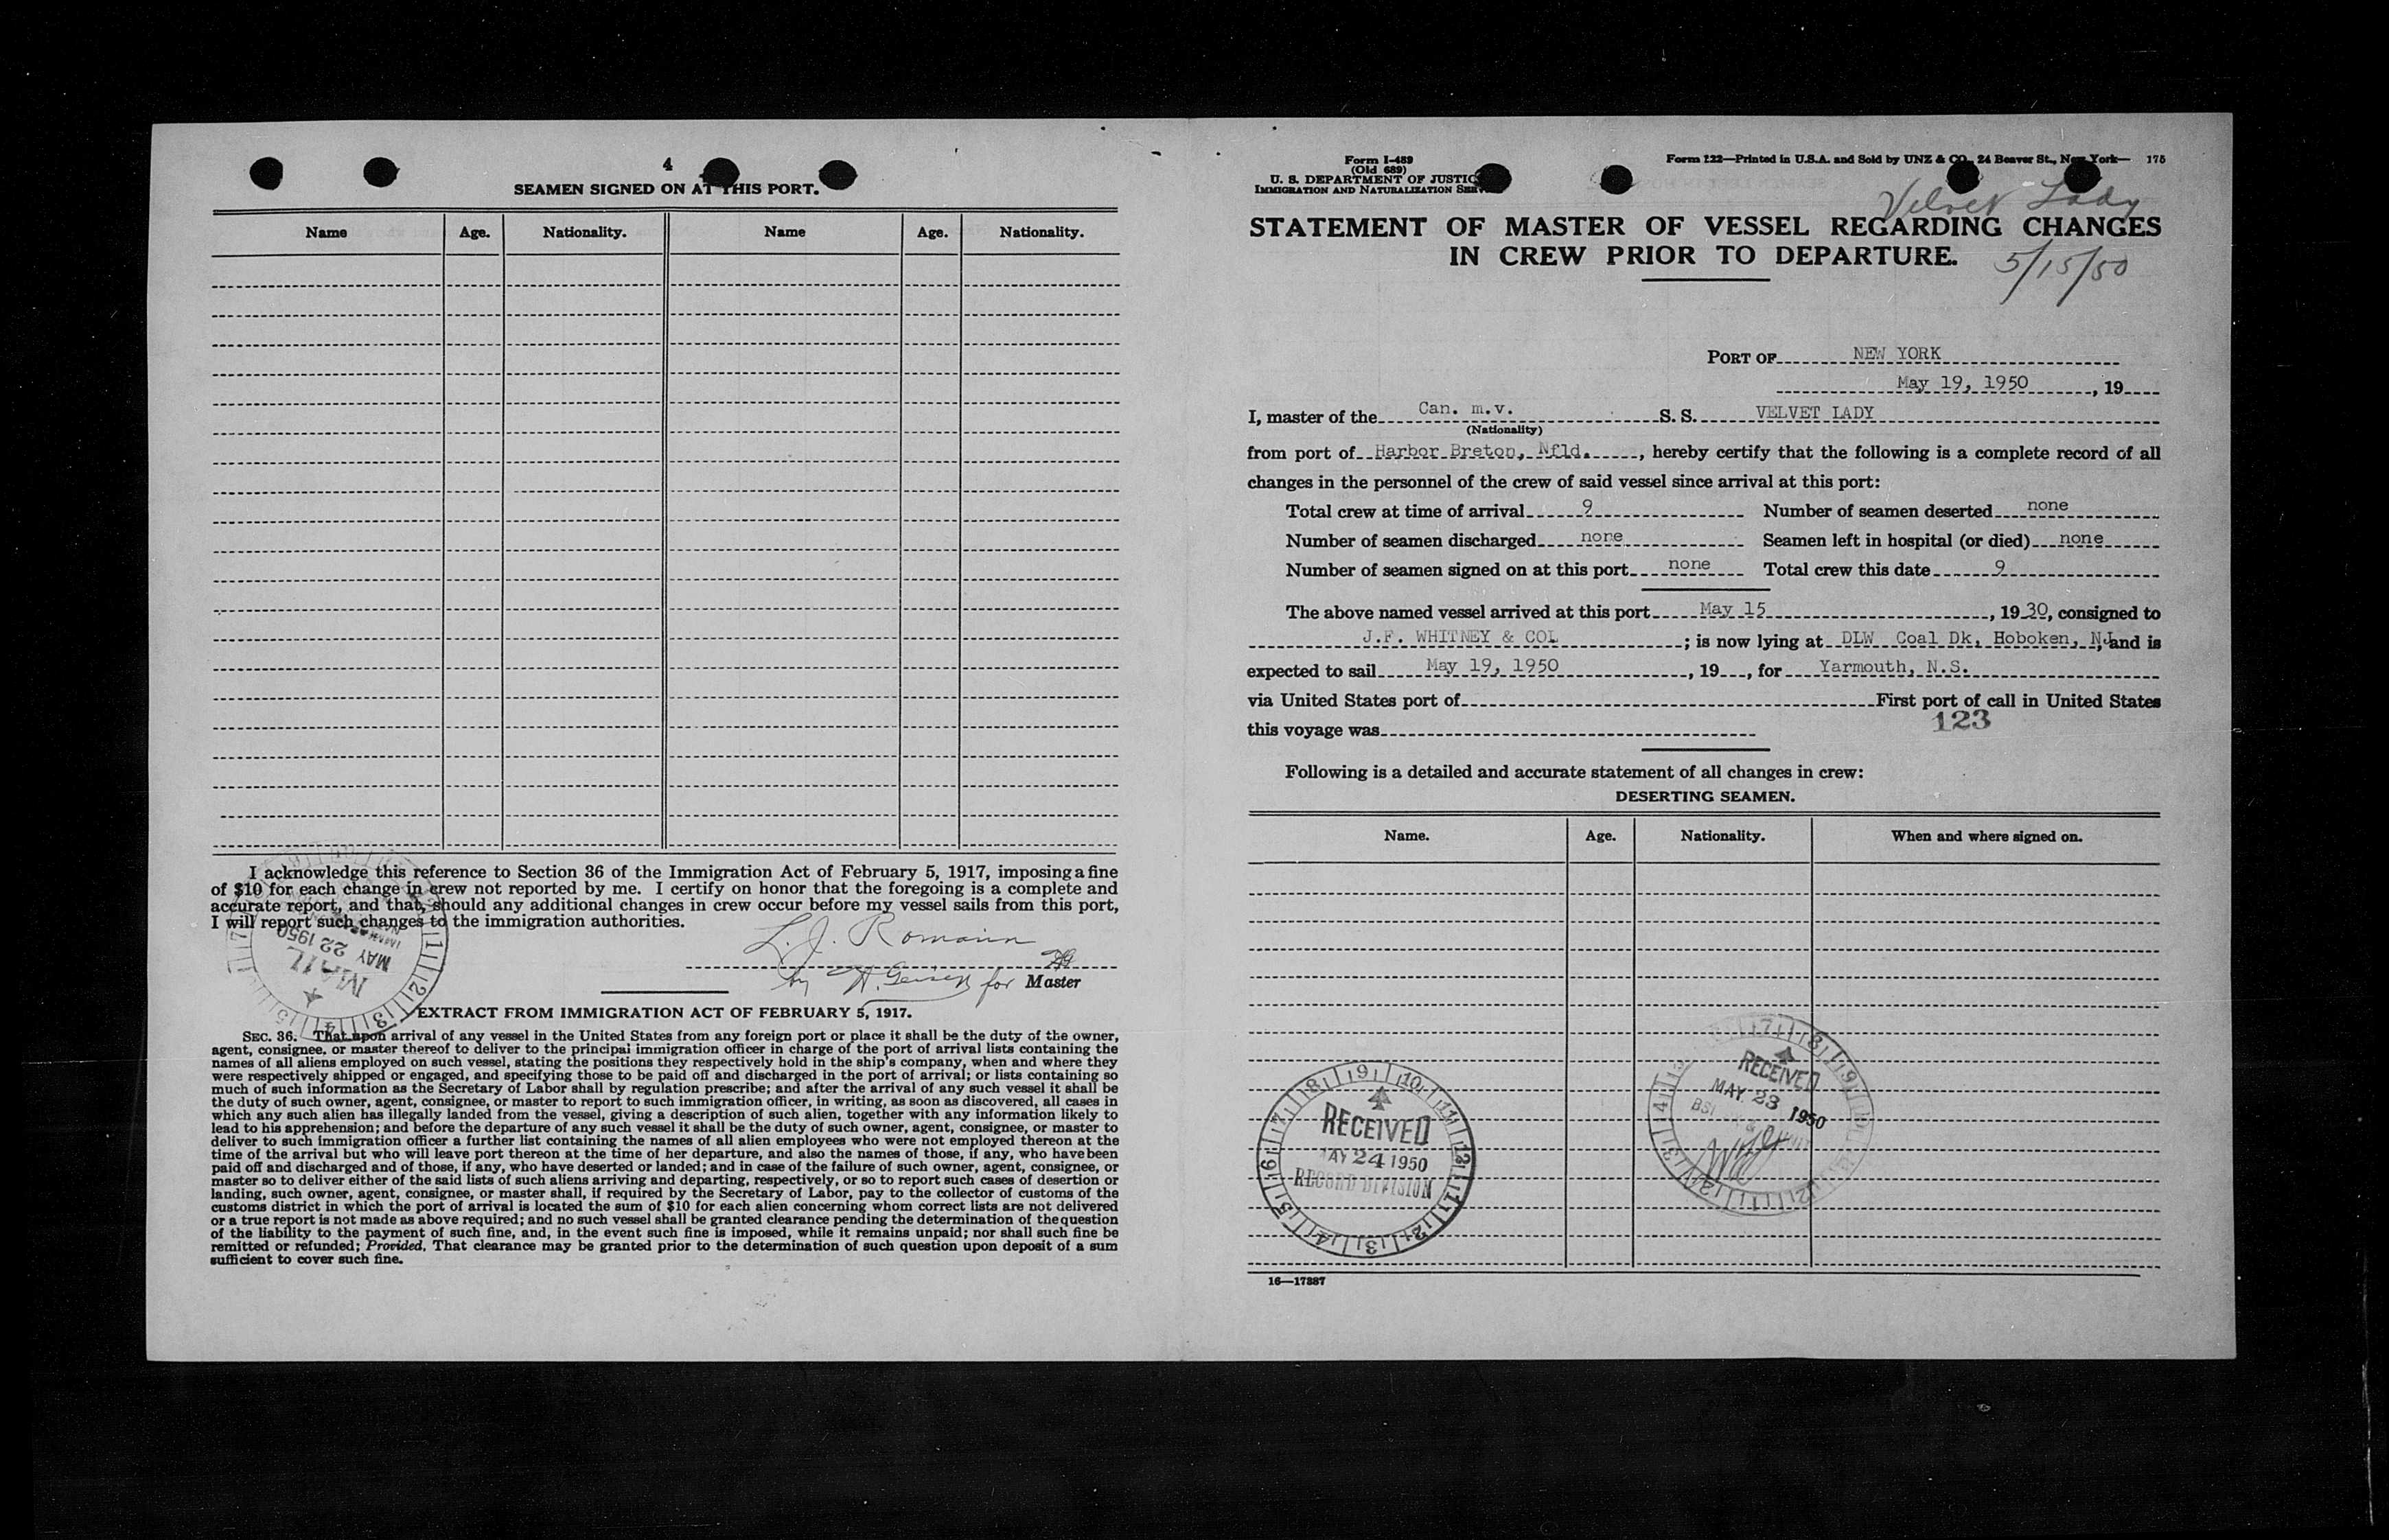 4
SEAMEN SIGNED ON AT THIS PORT.
Name Age. Nationality. Name Age. Nationality.
I acknowledge this reference to Section 36 of the Immigration Act of February 5, 1917, imposing a fine
of $10 for each change in crew not reported by me. I certify on honor that the foregoing is a complete and
accurate report, and that, should any additional changes in crew occur before my vessel sails from this port,
I will report such changes to the immigration authorities.
MAY 22 1950
MAIL
L. J. Romain
by for Master
EXTRACT FROM IMMIGRATION ACT OF FEBRUARY 5, 1917.
SEC. 36. That upon arrival of any vessel in the United States from any foreign port or place it shall be the duty of the owner,
agent, consignee, or master thereof to deliver to the principal immigration officer in charge of the port of arrival lists containing the
names of all aliens employed on such vessel, stating the positions they respectively hold in the ship's company, when and where they
were respectively shipped or engaged, and specifying those to be paid off and discharged in the port of arrival; or lists containing so
much of such information as the Secretary of Labor shall by regulation prescribe; and after the arrival of any such vessel it shall be
the duty of such owner, agent, consignee, or master to report to such immigration officer, in writing, as soon as discovered, all cases in
which any such alien has illegally landed from the vessel, giving a description of such alien, together with any information likely to
lead to his apprehension; and before the departure of any such vessel it shall be the duty of such owner, agent, consignee, or master to
deliver to such immigration officer a further list containing the names of all alien employees who were not employed thereon at the
time of the arrival but who will leave port thereon at the time of her departure, and also the names of those, if any, who have been
paid off and discharged and of those, if any, who have deserted or landed; and in case of the failure of such owner, agent, consignee, or
master so to deliver either of the said lists of such aliens arriving and departing, respectively, or so to report such cases of desertion or
landing, such owner, agent, consignee, or master shall, if required by the Secretary of Labor, pay to the collector of customs of the
customs district in which the port of arrival is located the sum of $10 for each alien concerning whom correct lists are not delivered
or a true report is not made as above required; and no such vessel shall be granted clearance pending the determination of the question
of the liability to the payment of such fine, and, in the event such fine is imposed, while it remains unpaid; nor shall such fine be
remitted or refunded; Provided, That clearance may be granted prior to the determination of such question upon deposit of a sum
sufficient to cover such fine.
Form I-489
(Old 689)
U. S. DEPARTMENT OF JUSTICE
IMMIGRATION AND NATURALIZATION SERVICE
Form 122—Printed in U.S.A. and Sold by UNZ & CO., 24 Beaver St., New York— 175
Velvet Lady
STATEMENT OF MASTER OF VESSEL REGARDING CHANGES
IN CREW PRIOR TO DEPARTURE.
5/15/50
PORT OF NEW YORK
May 19, 1950, 19
I, master of the Can. m.v. S. S. VELVET LADY
(Nationality)
from port of Harbor Breton, Nfld., hereby certify that the following is a complete record of all
changes in the personnel of the crew of said vessel since arrival at this port:
Total crew at time of arrival 9 Number of seamen deserted none
Number of seamen discharged none Seamen left in hospital (or died) none
Number of seamen signed on at this port none Total crew this date 9
The above named vessel arrived at this port May 15, 1930, consigned to
J.F. WHITNEY & COL; is now lying at DLW Coal Dk, Hoboken, NJ, and is
expected to sail May 19, 1950, 19, for Yarmouth, N.S.
via United States port of First port of call in United States
this voyage was
123
Following is a detailed and accurate statement of all changes in crew:
DESERTING SEAMEN.
Name. Age. Nationality. When and where signed on.
RECEIVED
MAY 23 1950
RECEIVED
MAY 24 1950
RECORD DIVISION
16—17887